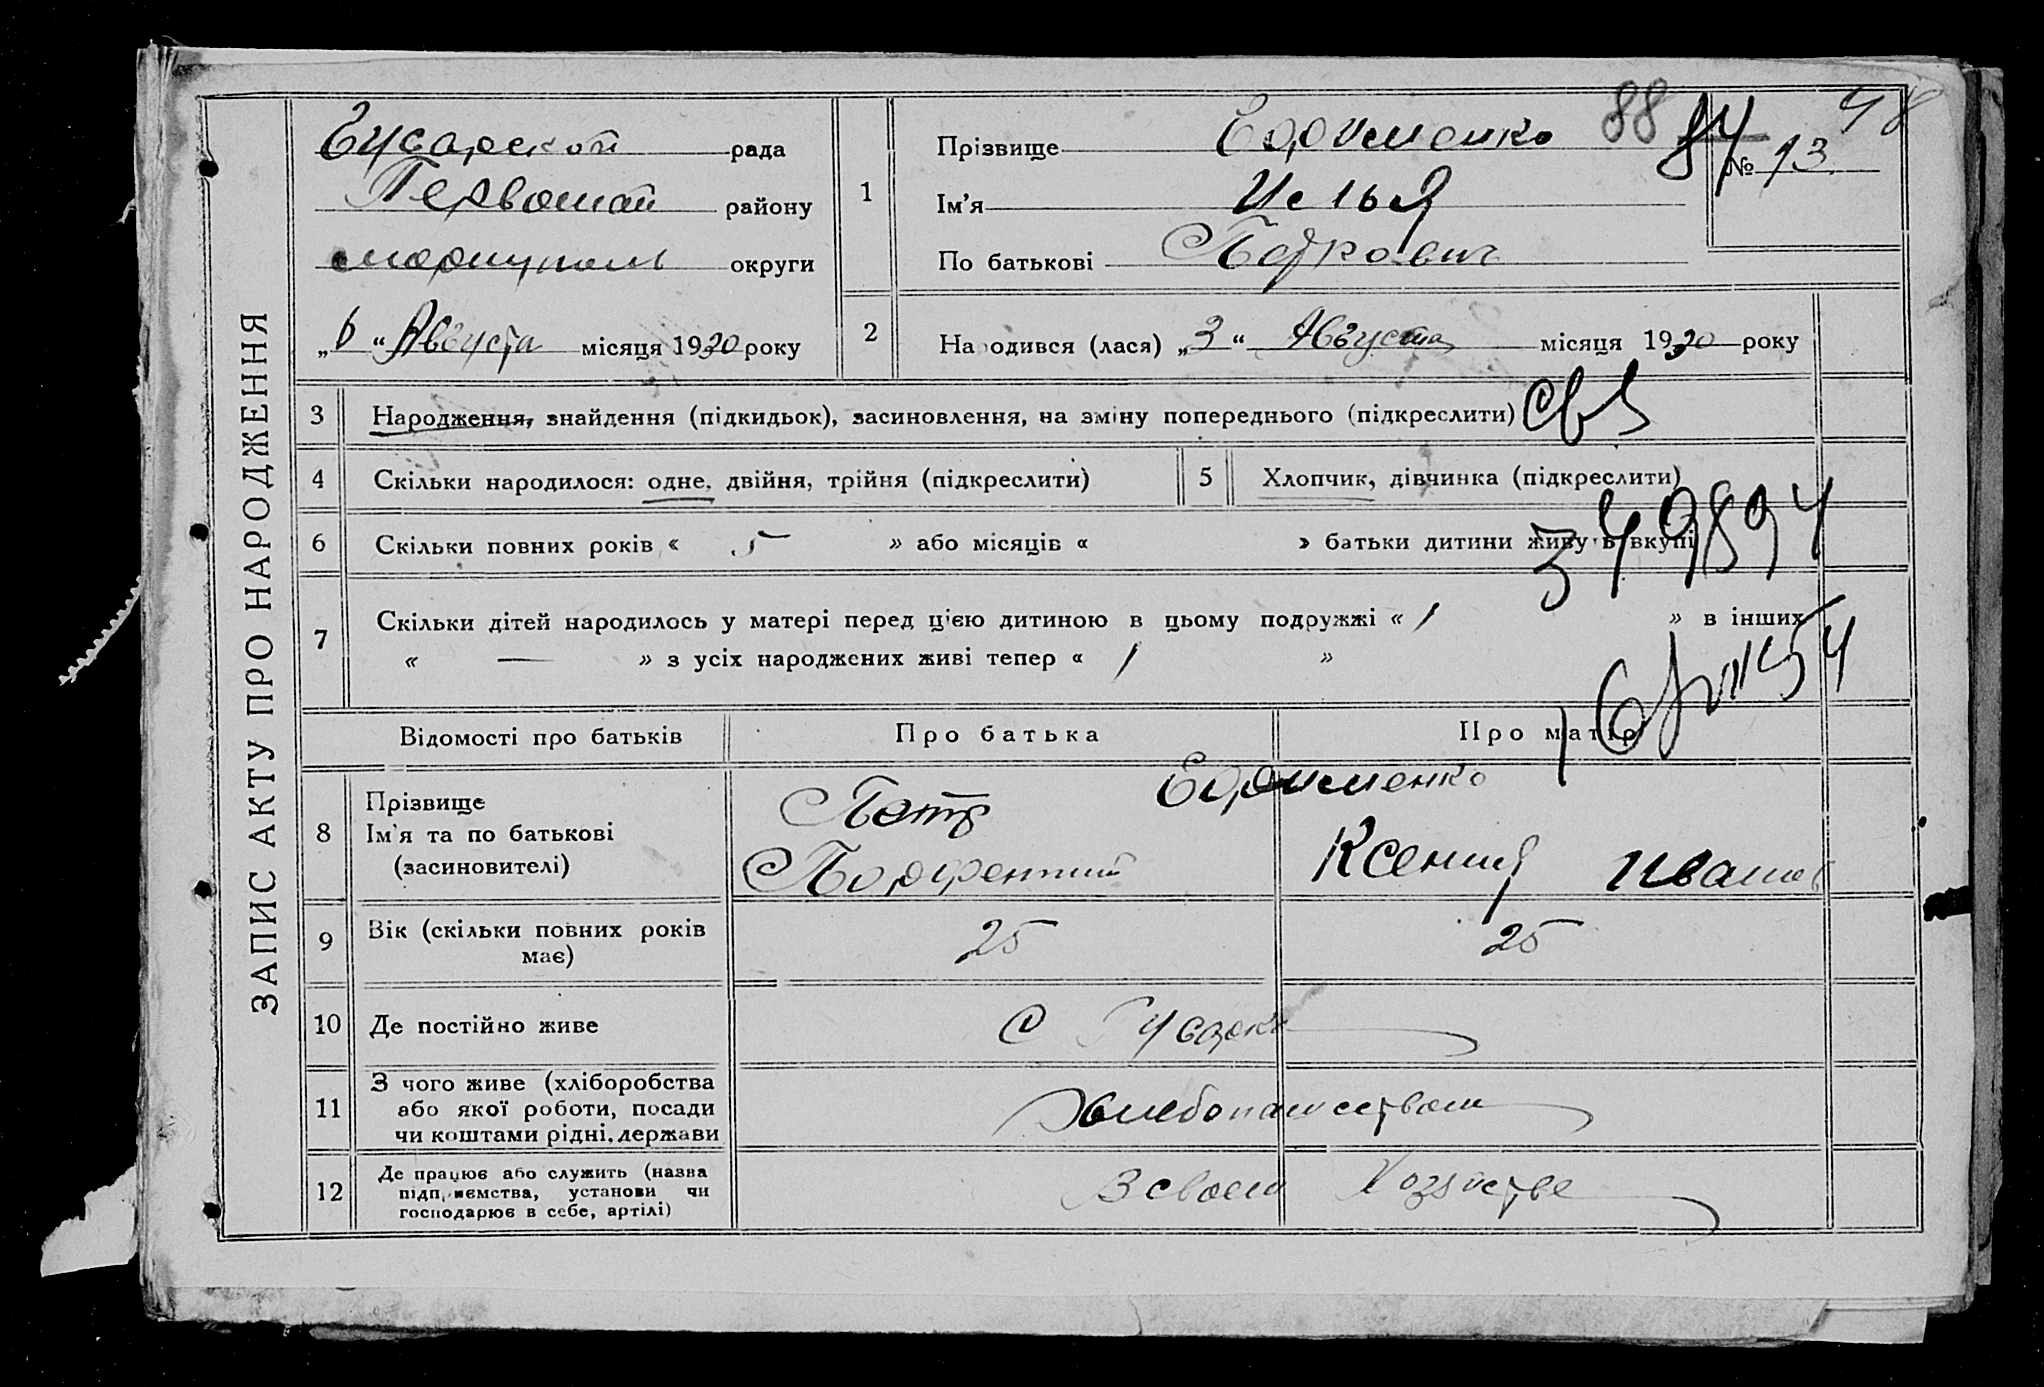 ЗАПИС АКТУ ПРО НАРОДЖЕННЯ
Гусарской рада
Первомай району
мариуполь округи
„6“ Августа місяця 1930 року
88 84 98
№ 13
1 Прізвище Ефименко
Ім'я Илья
По батькові Петрович
2 Народився (лася) „3“ Августа місяця 1930 року
3 Народження, знайдення (підкидьок), засиновлення, на зміну попереднього (підкреслити)
4 Скільки народилося: одне, двійня, трійня (підкреслити)
5 Хлопчик, дівчинка (підкреслити)
6 Скільки повних років « 5 » або місяців « » батьки дитини живуть вкупі
349894
7 Скільки дітей народилось у матері перед ц'єю дитиною в цьому подружжі « 1 » в інших
« — » з усіх народжених живі тепер « 1 »
Відомості про батьків Про батька Про матір
8 Прізвище Ефименко
Ім'я та по батькові Петр Ксения Иванов
(засиновителі)
9 Вік (скільки повних років має) 25 25
10 Де постійно живе С Гусарки
11 З чого живе (хліборобства
або якої роботи, посади Хлебопашеством
чи коштами рідні, держави
12 Де працює або служить (назва
підприємства, установи чи В своем Хозяйстве
господарює в себе, артілі)